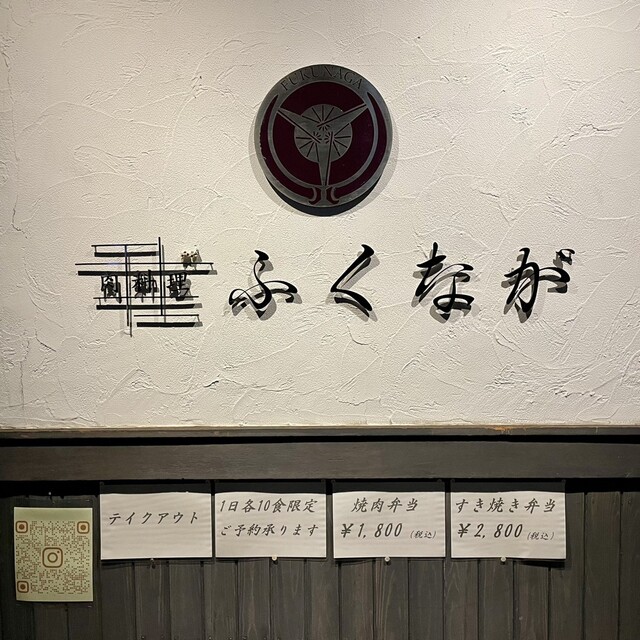 FUKUNAGA
肉料理
ふくなが
テイクアウト
1日各10食限定
ご予約承ります
焼肉弁当
￥1,800 (税込)
すき焼き弁当
￥2,800 (税込)